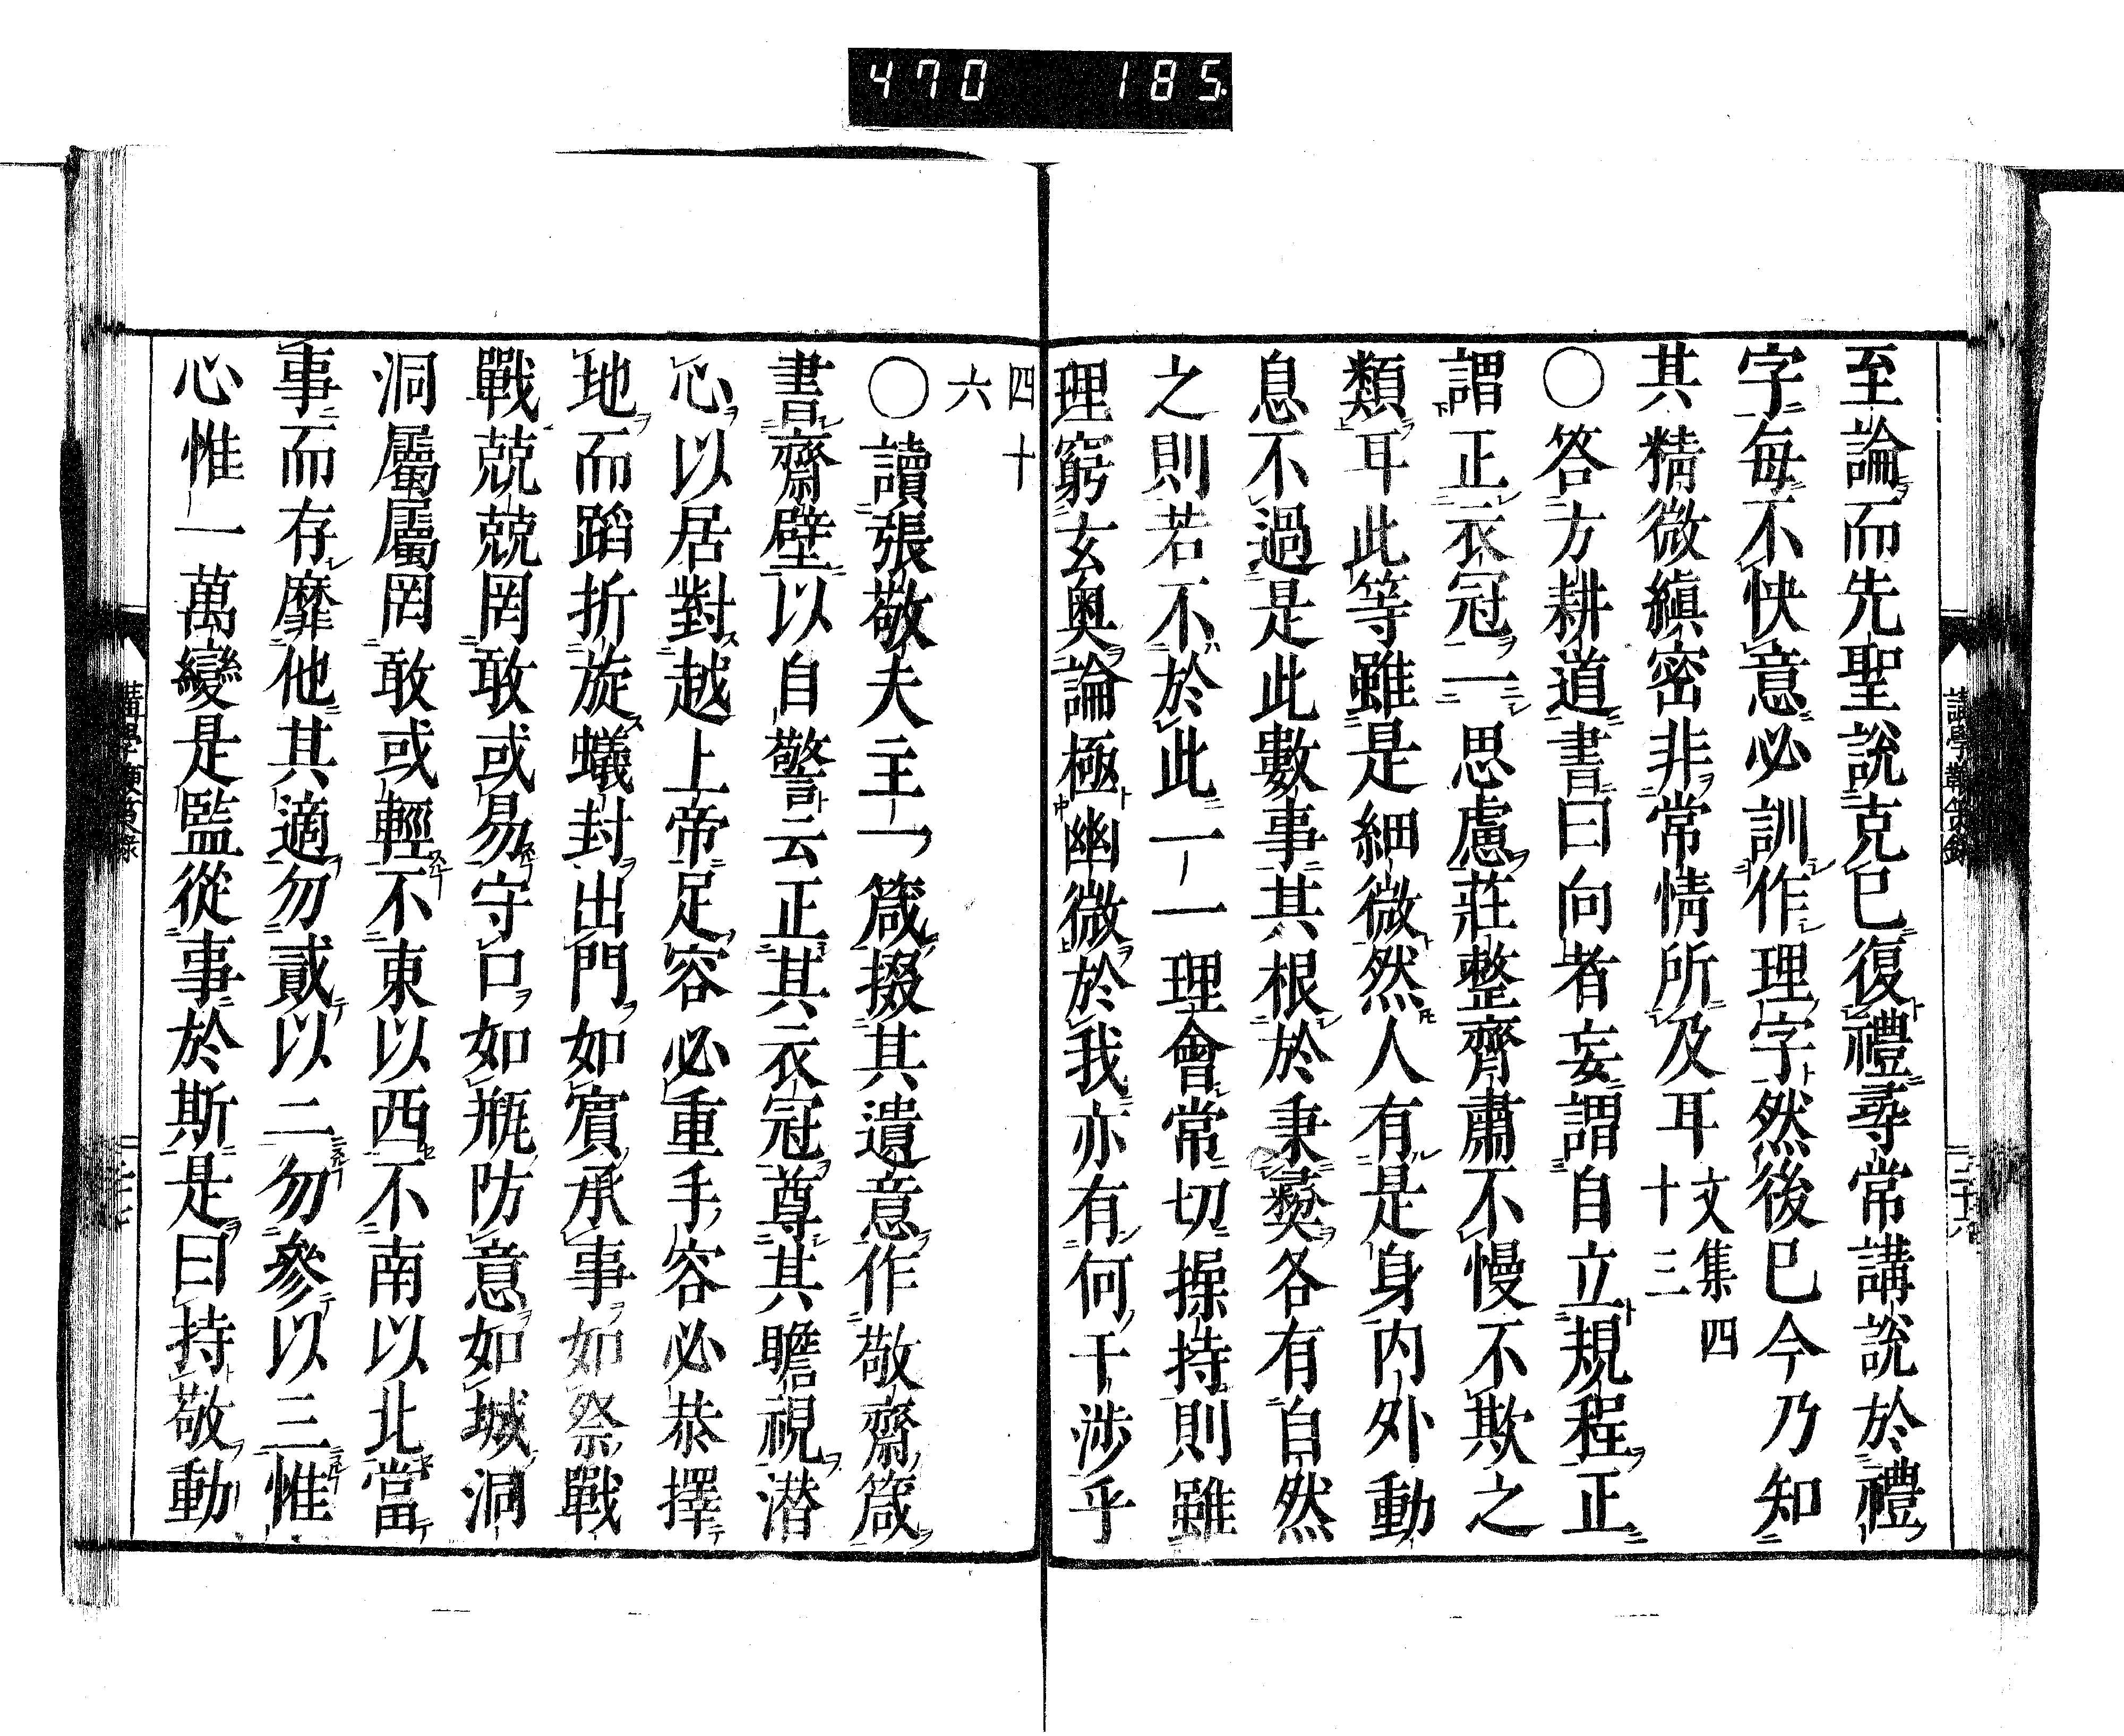 470 185
至論而先聖說克已復禮尋常講說於禮
字每不快意必訓作理字然後已今乃知
其精微縝密非常情所及耳文集四十三
〇答方耕道書曰向者妄謂自立規程正
謂正衣冠一思慮莊整齊肅不慢不欺之
類耳此等雖是細微然人有是身内外動
息不過是此數事其根於秉彜各有自然
之則若不於此一一理會常切操持則雖
理窮玄奥論極幽微於我亦有何干涉乎
四十六
〇讀張敬夫主一箴掇其遺意作敬齋箴
書齋壁以自警云正其衣冠尊其瞻視潜
心以居對越上帝足容必重手容必恭擇
地而蹈折旋蟻封出門如賓承事如祭戰
戰兢兢罔敢或易守口如瓶防意如城洞
洞屬屬罔敢或輕不東以西不南以北當
事而存靡他其適勿貳以二勿參以三惟
心惟一萬變是監從事於斯是曰持敬動